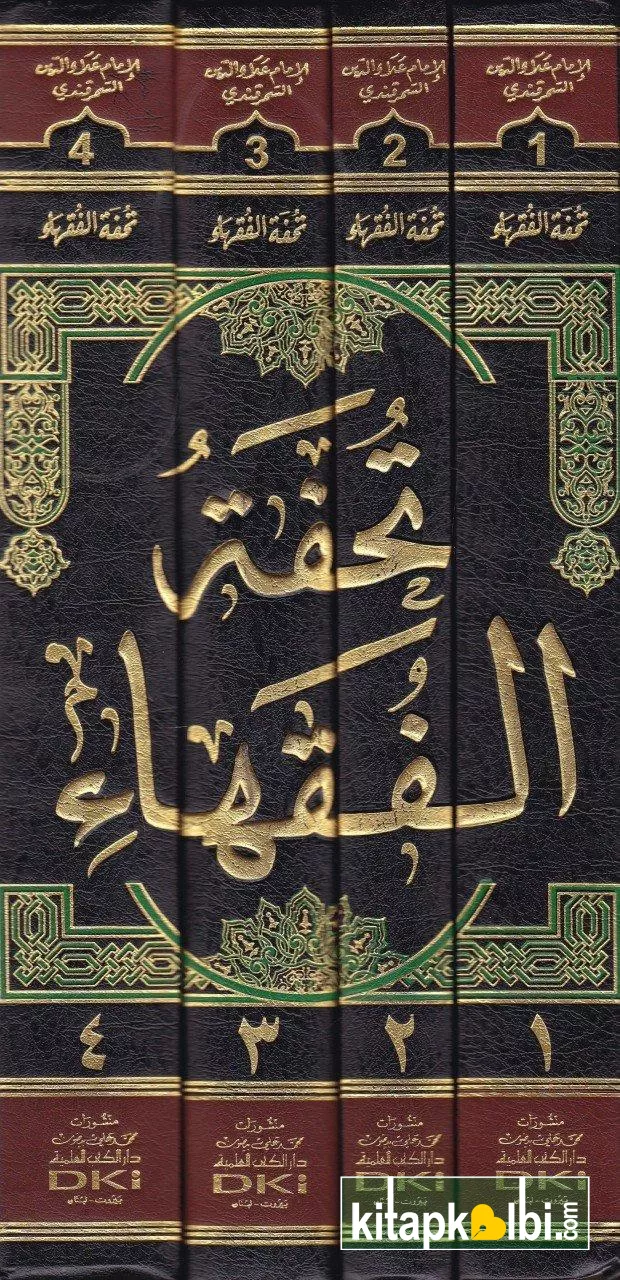 الإمام علاء الدين
السمرقندي
1
تحفة الفقهاء
الإمام علاء الدين
السمرقندي
2
تحفة الفقهاء
الإمام علاء الدين
السمرقندي
3
تحفة الفقهاء
الإمام علاء الدين
السمرقندي
4
تحفة الفقهاء
تُحْفَةُ
الفُقَهَاءِ
١
٢
٣
٤
منشورات
محمد علي بيضون
دار الكتب العلمية
DKi
بيروت - لبنان
منشورات
محمد علي بيضون
دار الكتب العلمية
DKi
بيروت - لبنان
منشورات
محمد علي بيضون
دار الكتب العلمية
DKi
بيروت - لبنان
منشورات
محمد علي بيضون
دار الكتب العلمية
DKi
بيروت - لبنان
kitapkalbi.com